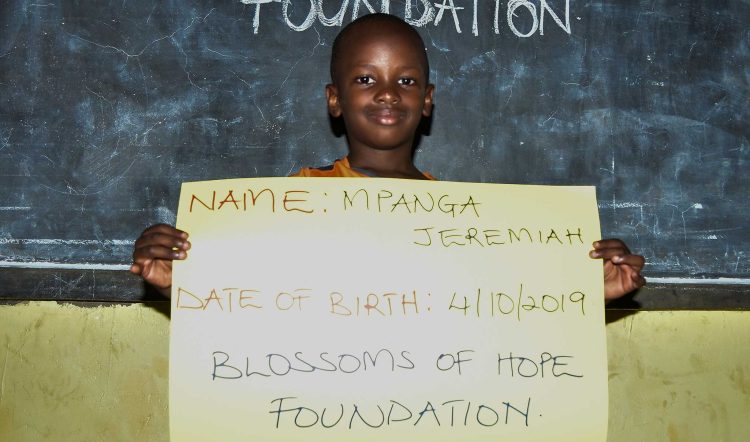 FOUNDATION
NAME: MPANGA
JEREMIAH
DATE OF BIRTH: 4/10/2019
BLOSSOMS OF HOPE
FOUNDATION.